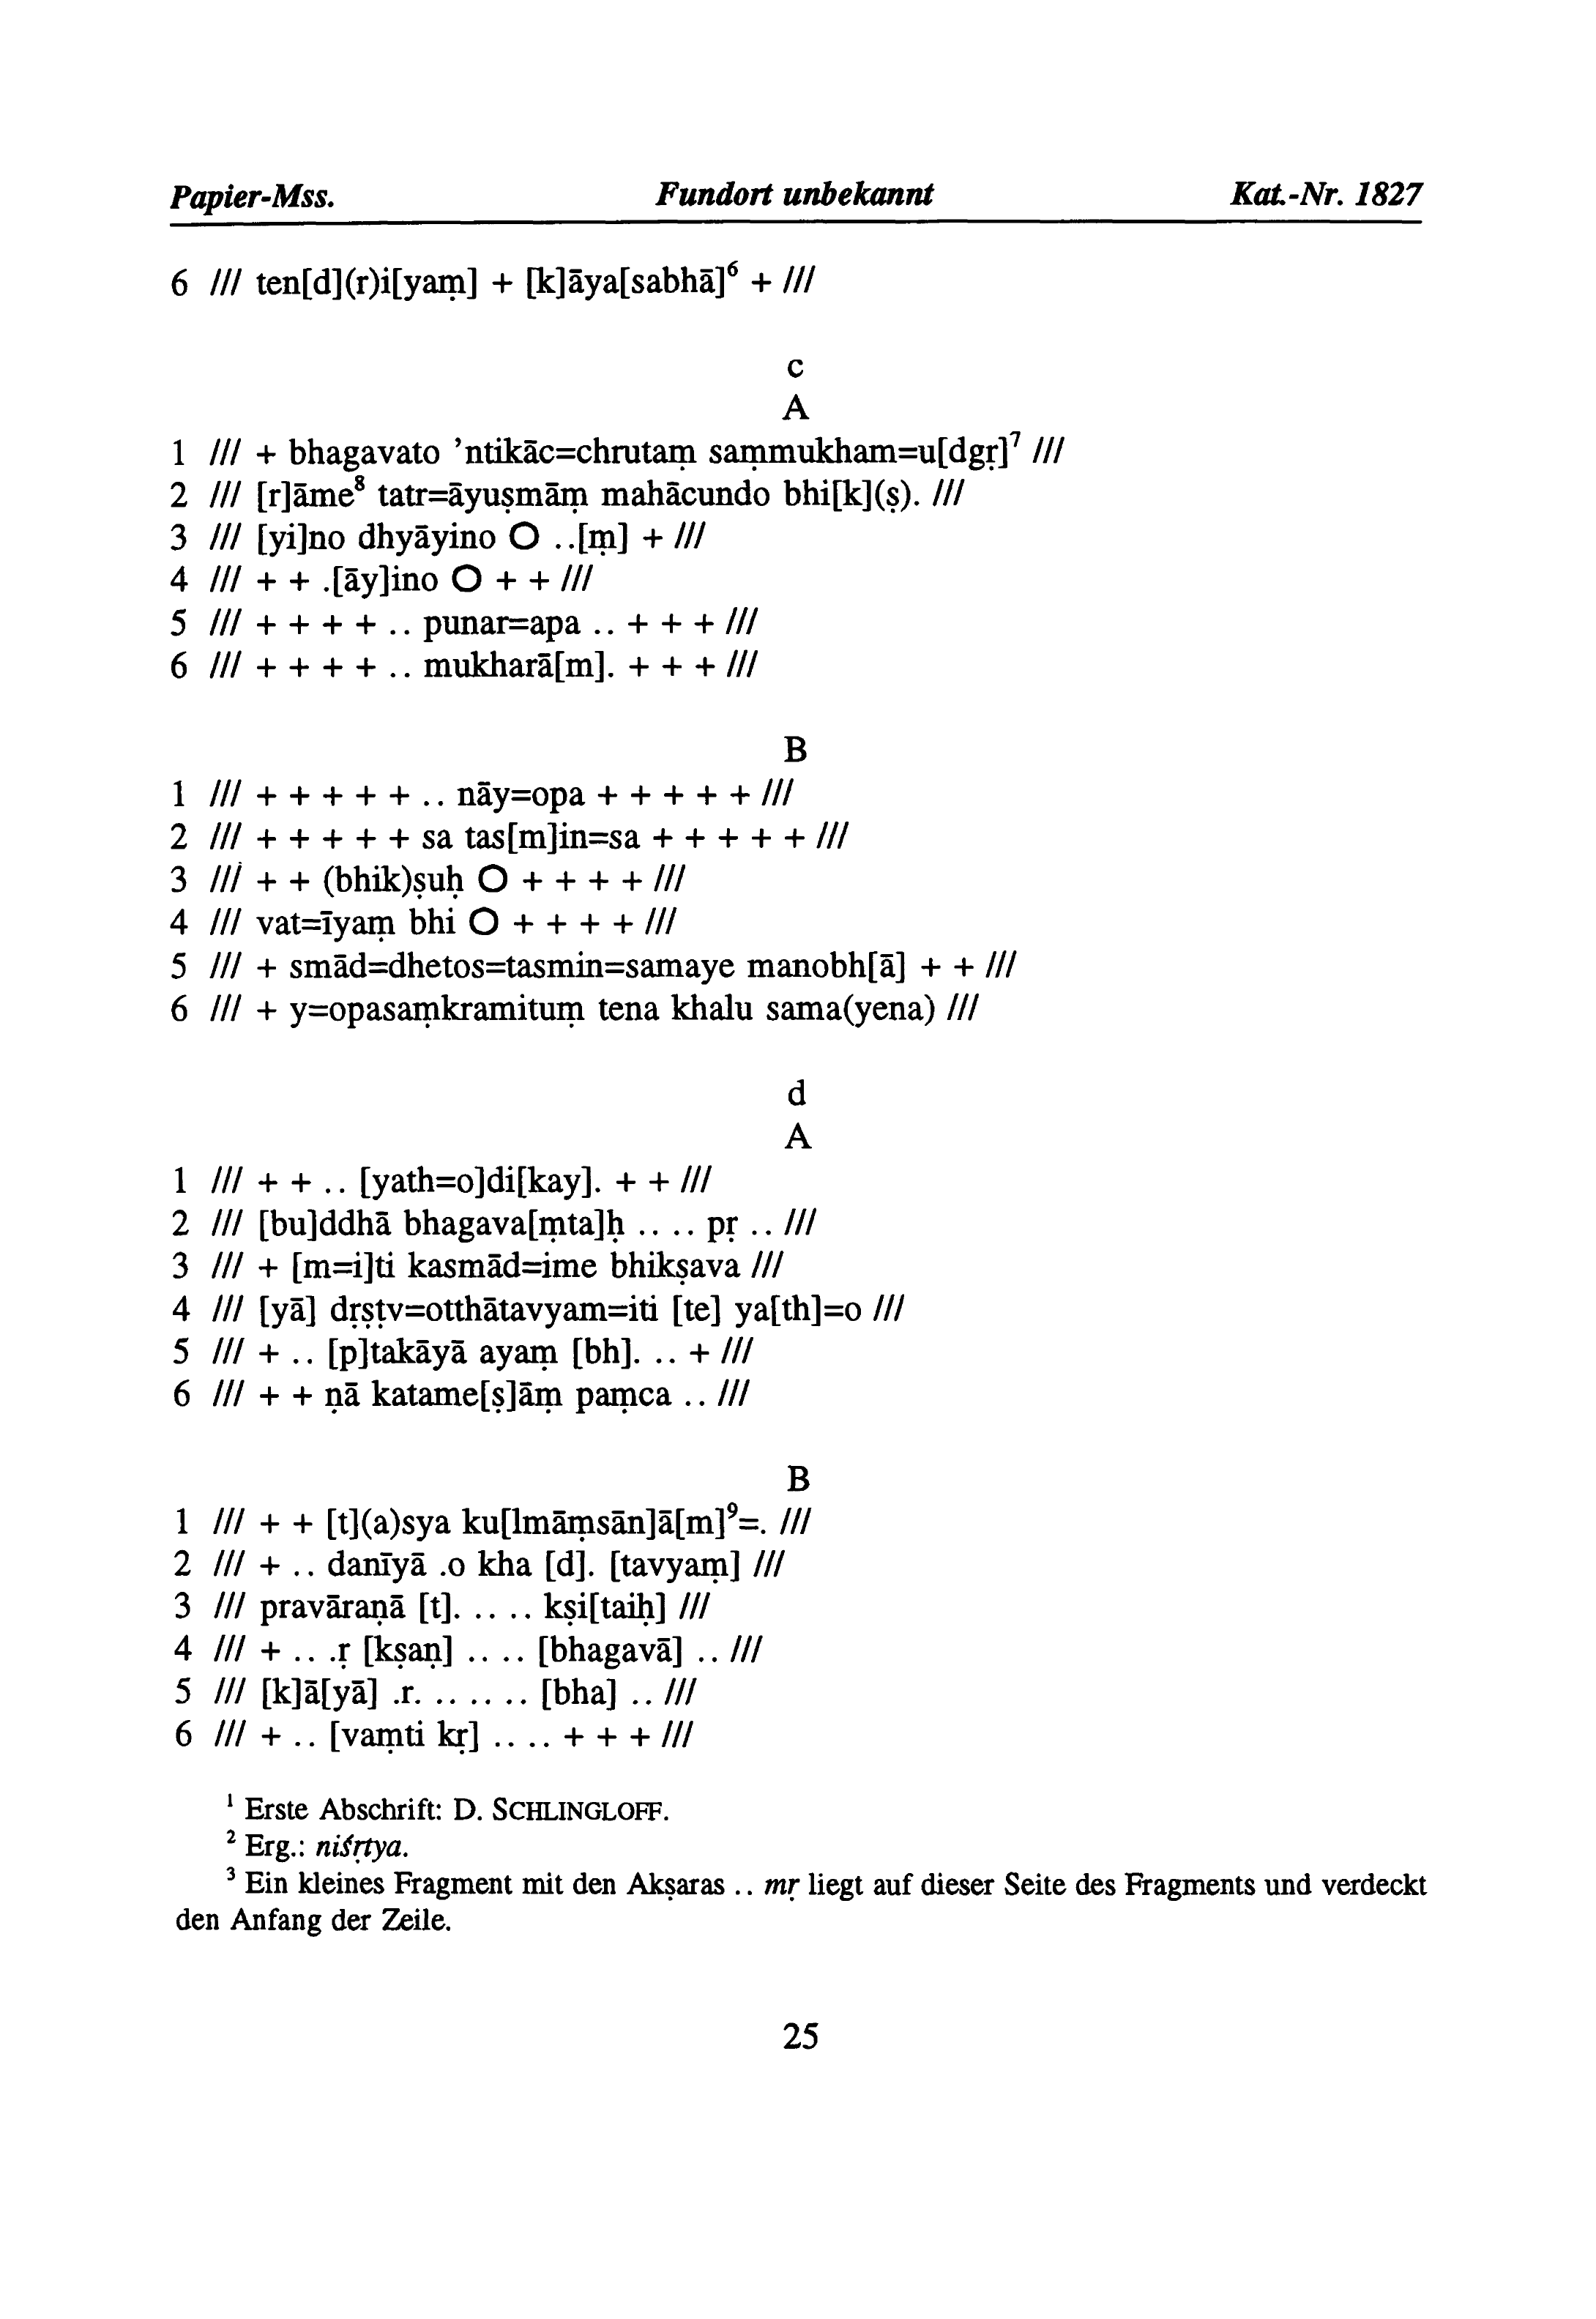 Papier-Mss. Fundort unbekannt Kat.-Nr. 1827
6 /// ten[d](r)i[yaṃ] + [k]āya[sabhā]⁶ + ///
c
A
1 /// + bhagavato ’ntikāc=chrutaṃ saṃmukham=u[dgṛ]⁷ ///
2 /// [r]āme⁸ tatr=āyuṣmāṃ mahācundo bhi[k](ṣ). ///
3 /// [yi]no dhyāyino O ..[ṃ] + ///
4 /// + + .[āy]ino O + + ///
5 /// + + + + .. punar=apa .. + + + ///
6 /// + + + + .. mukharā[m]. + + + ///
B
1 /// + + + + + .. nāy=opa + + + + + ///
2 /// + + + + + sa tas[m]in=sa + + + + + ///
3 /// + + (bhik)ṣuḥ O + + + + ///
4 /// vat=īyaṃ bhi O + + + + ///
5 /// + smād=dhetos=tasmin=samaye manobh[ā] + + ///
6 /// + y=opasaṃkramituṃ tena khalu sama(yena) ///
d
A
1 /// + + .. [yath=o]di[kay]. + + ///
2 /// [bu]ddhā bhagava[ṃta]ḥ .. .. pṛ .. ///
3 /// + [m=i]ti kasmād=ime bhikṣava ///
4 /// [yā] dṛṣṭv=otthātavyam=iti [te] ya[th]=o ///
5 /// + .. [p]takāyā ayaṃ [bh]. .. + ///
6 /// + + ṇā katame[ṣ]āṃ paṃca .. ///
B
1 /// + + [t](a)sya ku[lmāṃsān]ā[m]⁹=. ///
2 /// + .. danīyā .o kha [d]. [tavyaṃ] ///
3 /// pravāraṇā [t]. .. .. kṣi[taiḥ] ///
4 /// + .. .ṛ [kṣaṇ] .. .. [bhagavā] .. ///
5 /// [k]ā[yā] .r. .. .. .. [bha] .. ///
6 /// + .. [vaṃti kṛ] .. .. + + + ///
¹ Erste Abschrift: D. SCHLINGLOFF.
² Erg.: niśṛtya.
³ Ein kleines Fragment mit den Akṣaras .. mṛ liegt auf dieser Seite des Fragments und verdeckt
den Anfang der Zeile.
25